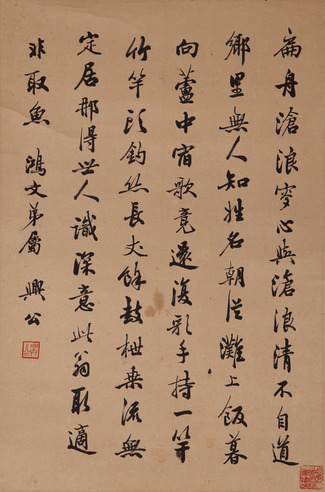 扁舟滄浪叟心與滄浪清不自道
鄉里無人知姓名朝從灘上飯暮
向蘆中宿歌竟還復歌手持一竿
竹竿頭釣絲長丈餘鼓枻乘流無
定居那得世人識深意此翁取適
非取魚 鴻文弟屬 興公